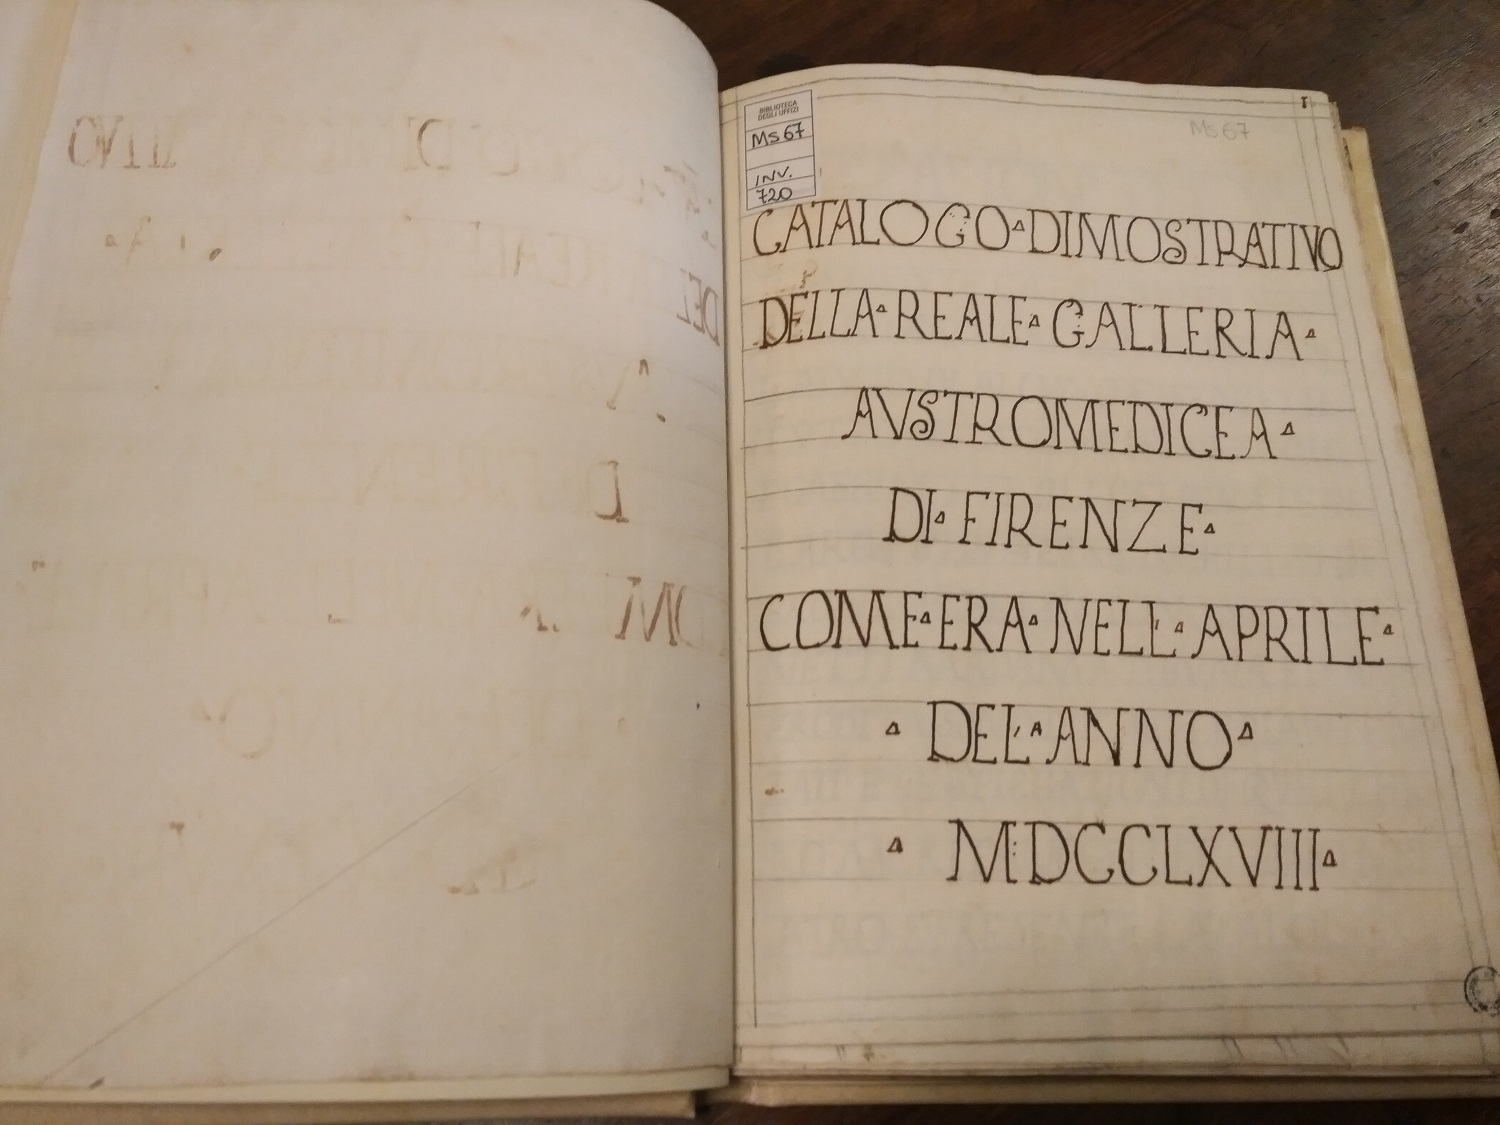 BIBLIOTECA
DEGLI UFFIZI
Ms 67
INV.
720
Ms 67
I
CATALOGO ▵ DIMOSTRATIVO
DELLA ▵ REALE ▵ GALLERIA ▵
AVSTROMEDICEA ▵
DI ▵ FIRENZE ▵
COME ▵ ERA ▵ NELL' ▵ APRILE ▵
▵ DEL' ▵ ANNO ▵
▵ MDCCLXVIII ▵